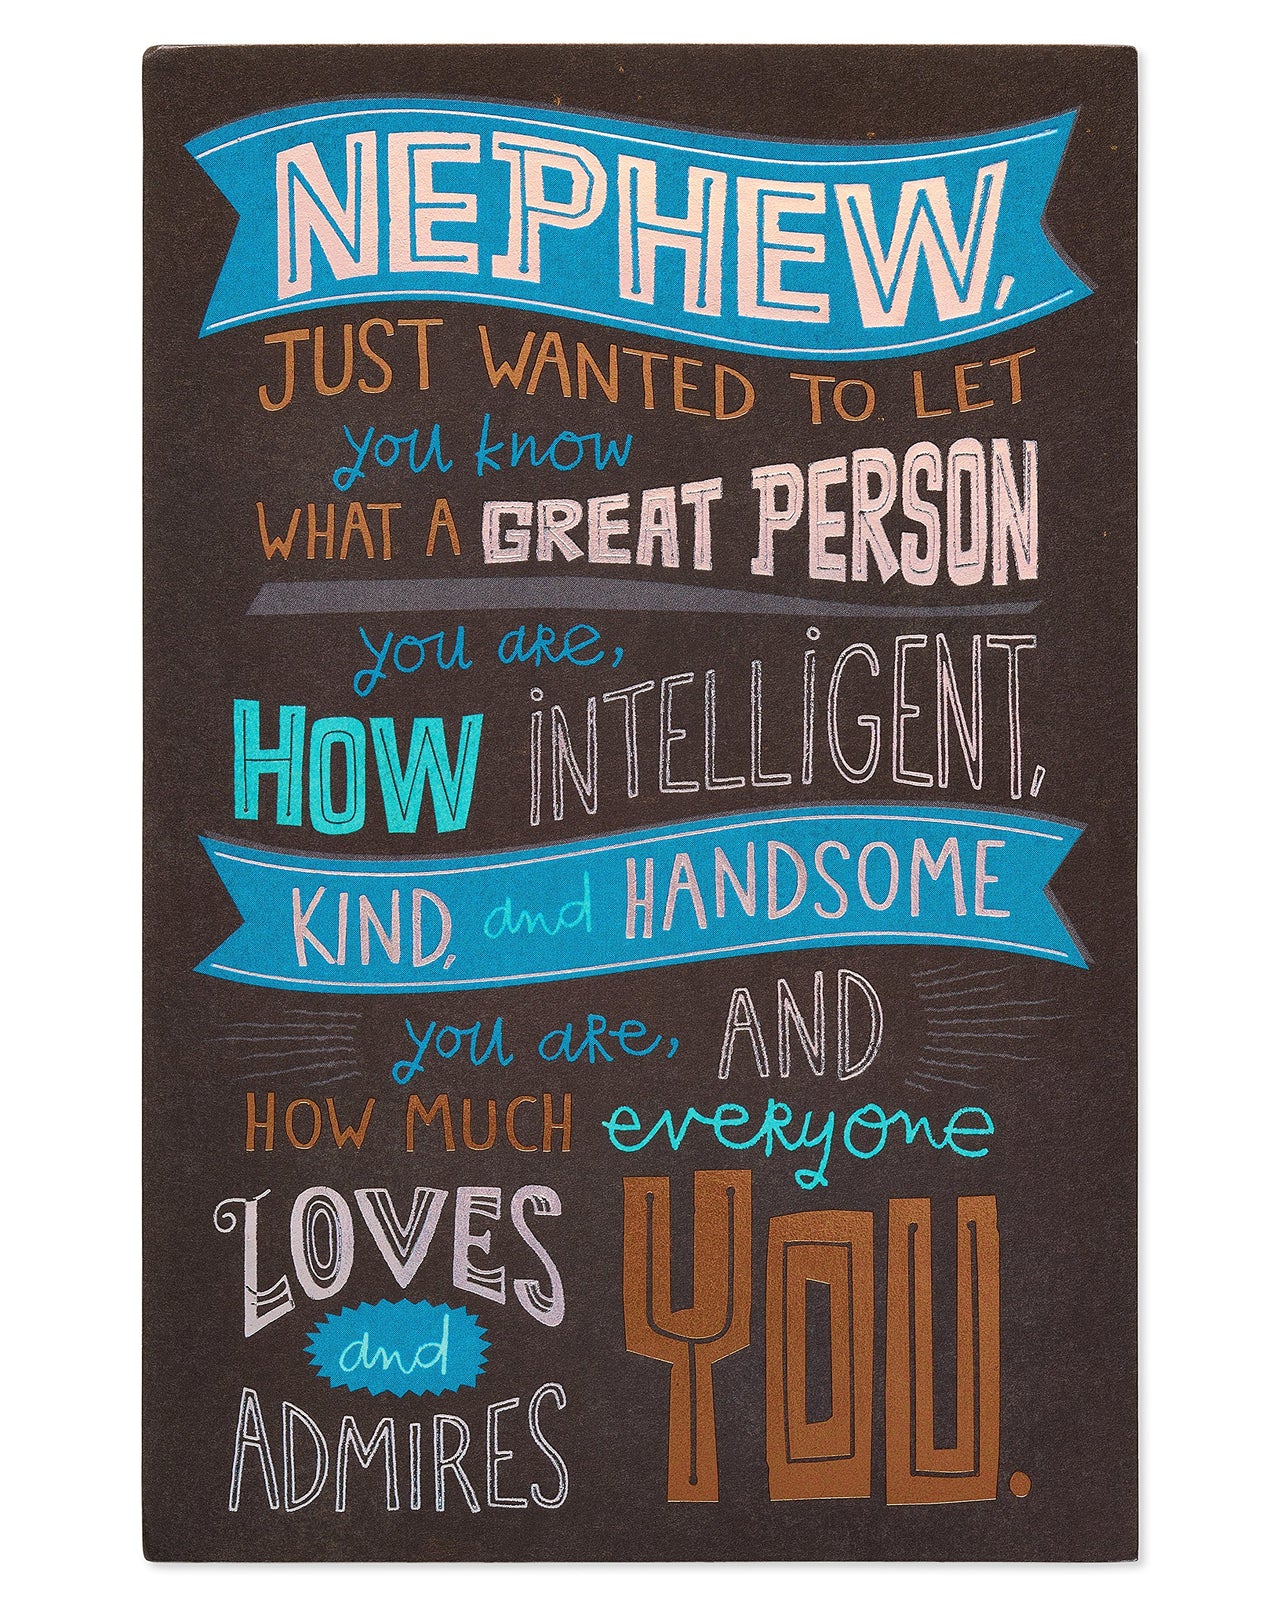 NEPHEW,
JUST WANTED TO LET
you know
WHAT A GREAT PERSON
you are,
HOW iNTELLiGENT,
KIND, and HANDSOME
you are, AND
HOW MUCH everyone
LOVES
and
ADMIRES
YOU.